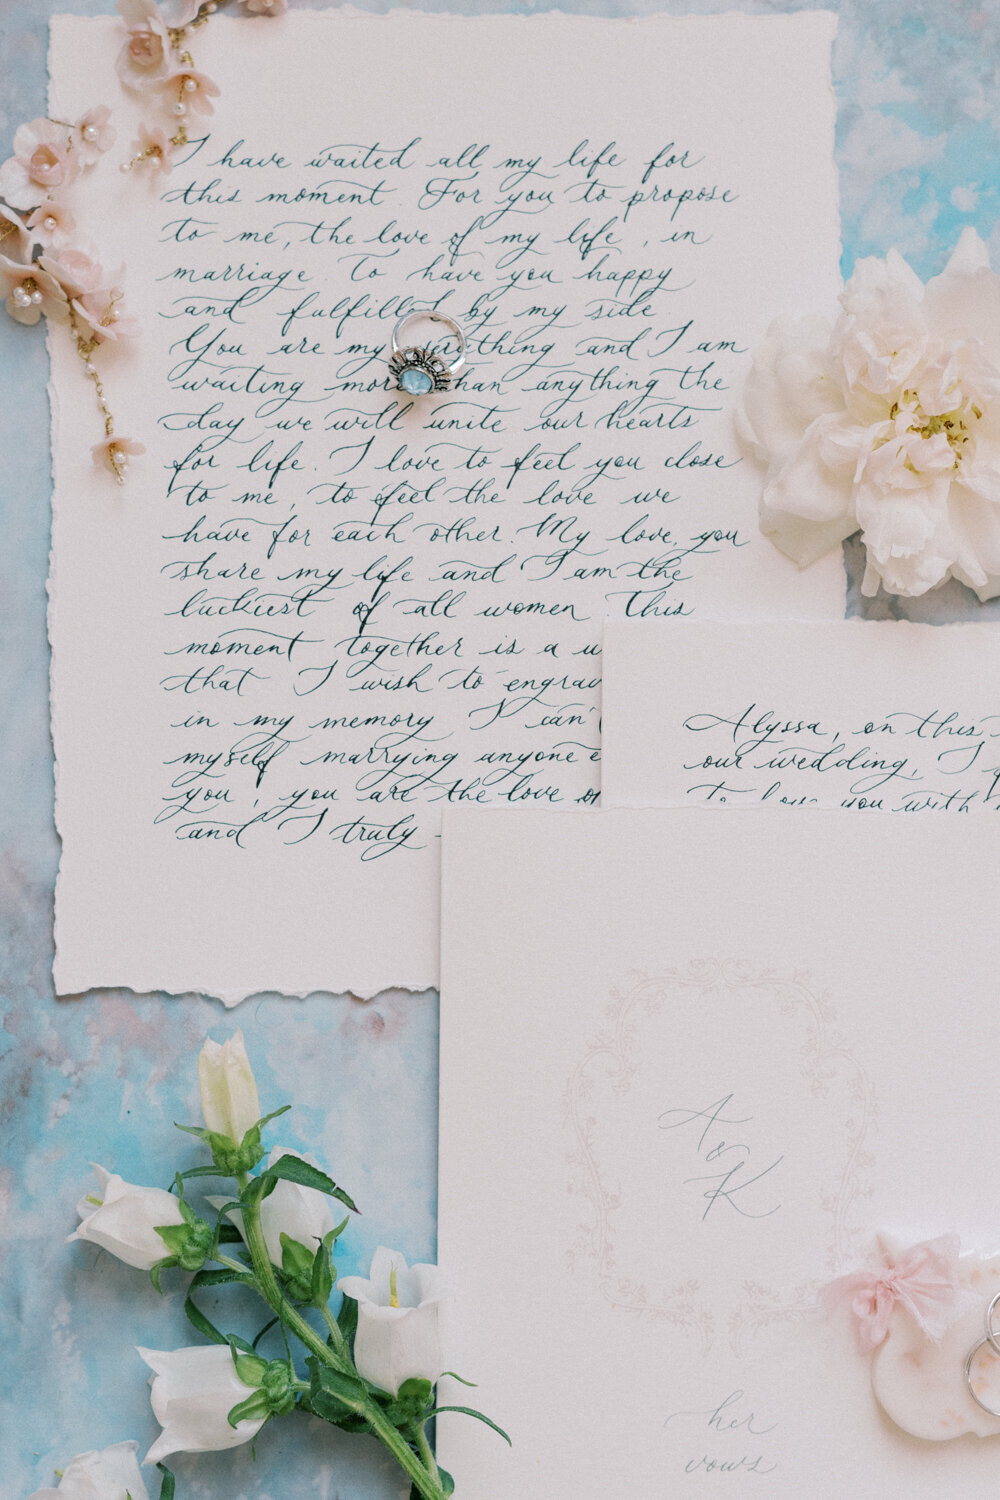 I have waited all my life for
this moment. For you to propose
to me, the love of my life, in
marriage. To have you happy
and fulfilled by my side.
You are my everything and I am
waiting more than anything the
day we will unite our hearts
for life. I love to feel you close
to me, to feel the love we
have for each other. My love, you
share my life and I am the
luckiest of all women. This
moment together is a
that I wish to engrav
in my memory I can'
myself marrying anyone e
you, you are the love o
and I truly
Alyssa, on this
our wedding, I
to love you with
A
&
K
her
vows